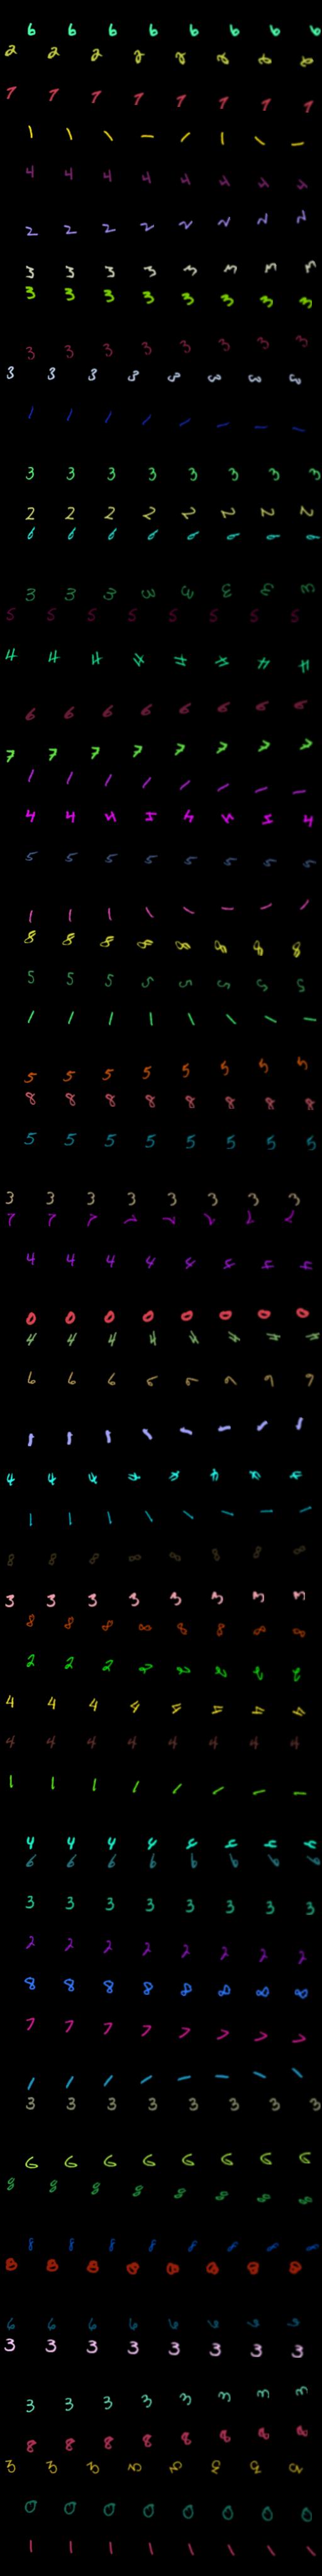 6 6 6 6 6 6 6 6
2 2 2 2 2 2 2 2
7 7 7 7 7 7 7 7
1 1 1 1 1 1 1 1
4 4 4 4 4 4 4 4
2 2 2 2 2 2 2 2
3 3 3 3 3 3 3 3
3 3 3 3 3 3 3 3
3 3 3 3 3 3 3 3
3 3 3 3 3 3 3 3
1 1 1 1 1 1 1 1
3 3 3 3 3 3 3 3
2 2 2 2 2 2 2 2
6 6 6 6 6 6 6 6
3 3 3 3 3 3 3 3
5 5 5 5 5 5 5 5
4 4 4 4 4 4 4 4
6 6 6 6 6 6 6 6
7 7 7 7 7 7 7 7
1 1 1 1 1 1 1 1
4 4 4 4 4 4 4 4
5 5 5 5 5 5 5 5
1 1 1 1 1 1 1 1
8 8 8 8 8 8 8 8
5 5 5 5 5 5 5 5
1 1 1 1 1 1 1 1
5 5 5 5 5 5 5 5
8 8 8 8 8 8 8 8
5 5 5 5 5 5 5 5
3 3 3 3 3 3 3 3
7 7 7 7 7 7 7 7
4 4 4 4 4 4 4 4
0 0 0 0 0 0 0 0
4 4 4 4 4 4 4 4
6 6 6 6 6 6 6 6
1 1 1 1 1 1 1 1
4 4 4 4 4 4 4 4
1 1 1 1 1 1 1 1
8 8 8 8 8 8 8 8
3 3 3 3 3 3 3 3
8 8 8 8 8 8 8 8
2 2 2 2 2 2 2 2
4 4 4 4 4 4 4 4
4 4 4 4 4 4 4 4
1 1 1 1 1 1 1 1
4 4 4 4 4 4 4 4
6 6 6 6 6 6 6 6
3 3 3 3 3 3 3 3
2 2 2 2 2 2 2 2
8 8 8 8 8 8 8 8
7 7 7 7 7 7 7 7
1 1 1 1 1 1 1 1
3 3 3 3 3 3 3 3
6 6 6 6 6 6 6 6
8 8 8 8 8 8 8 8
8 8 8 8 8 8 8 8
8 8 8 8 8 8 8 8
6 6 6 6 6 6 6 6
3 3 3 3 3 3 3 3
3 3 3 3 3 3 3 3
8 8 8 8 8 8 8 8
3 3 3 3 3 3 3 3
0 0 0 0 0 0 0 0
1 1 1 1 1 1 1 1